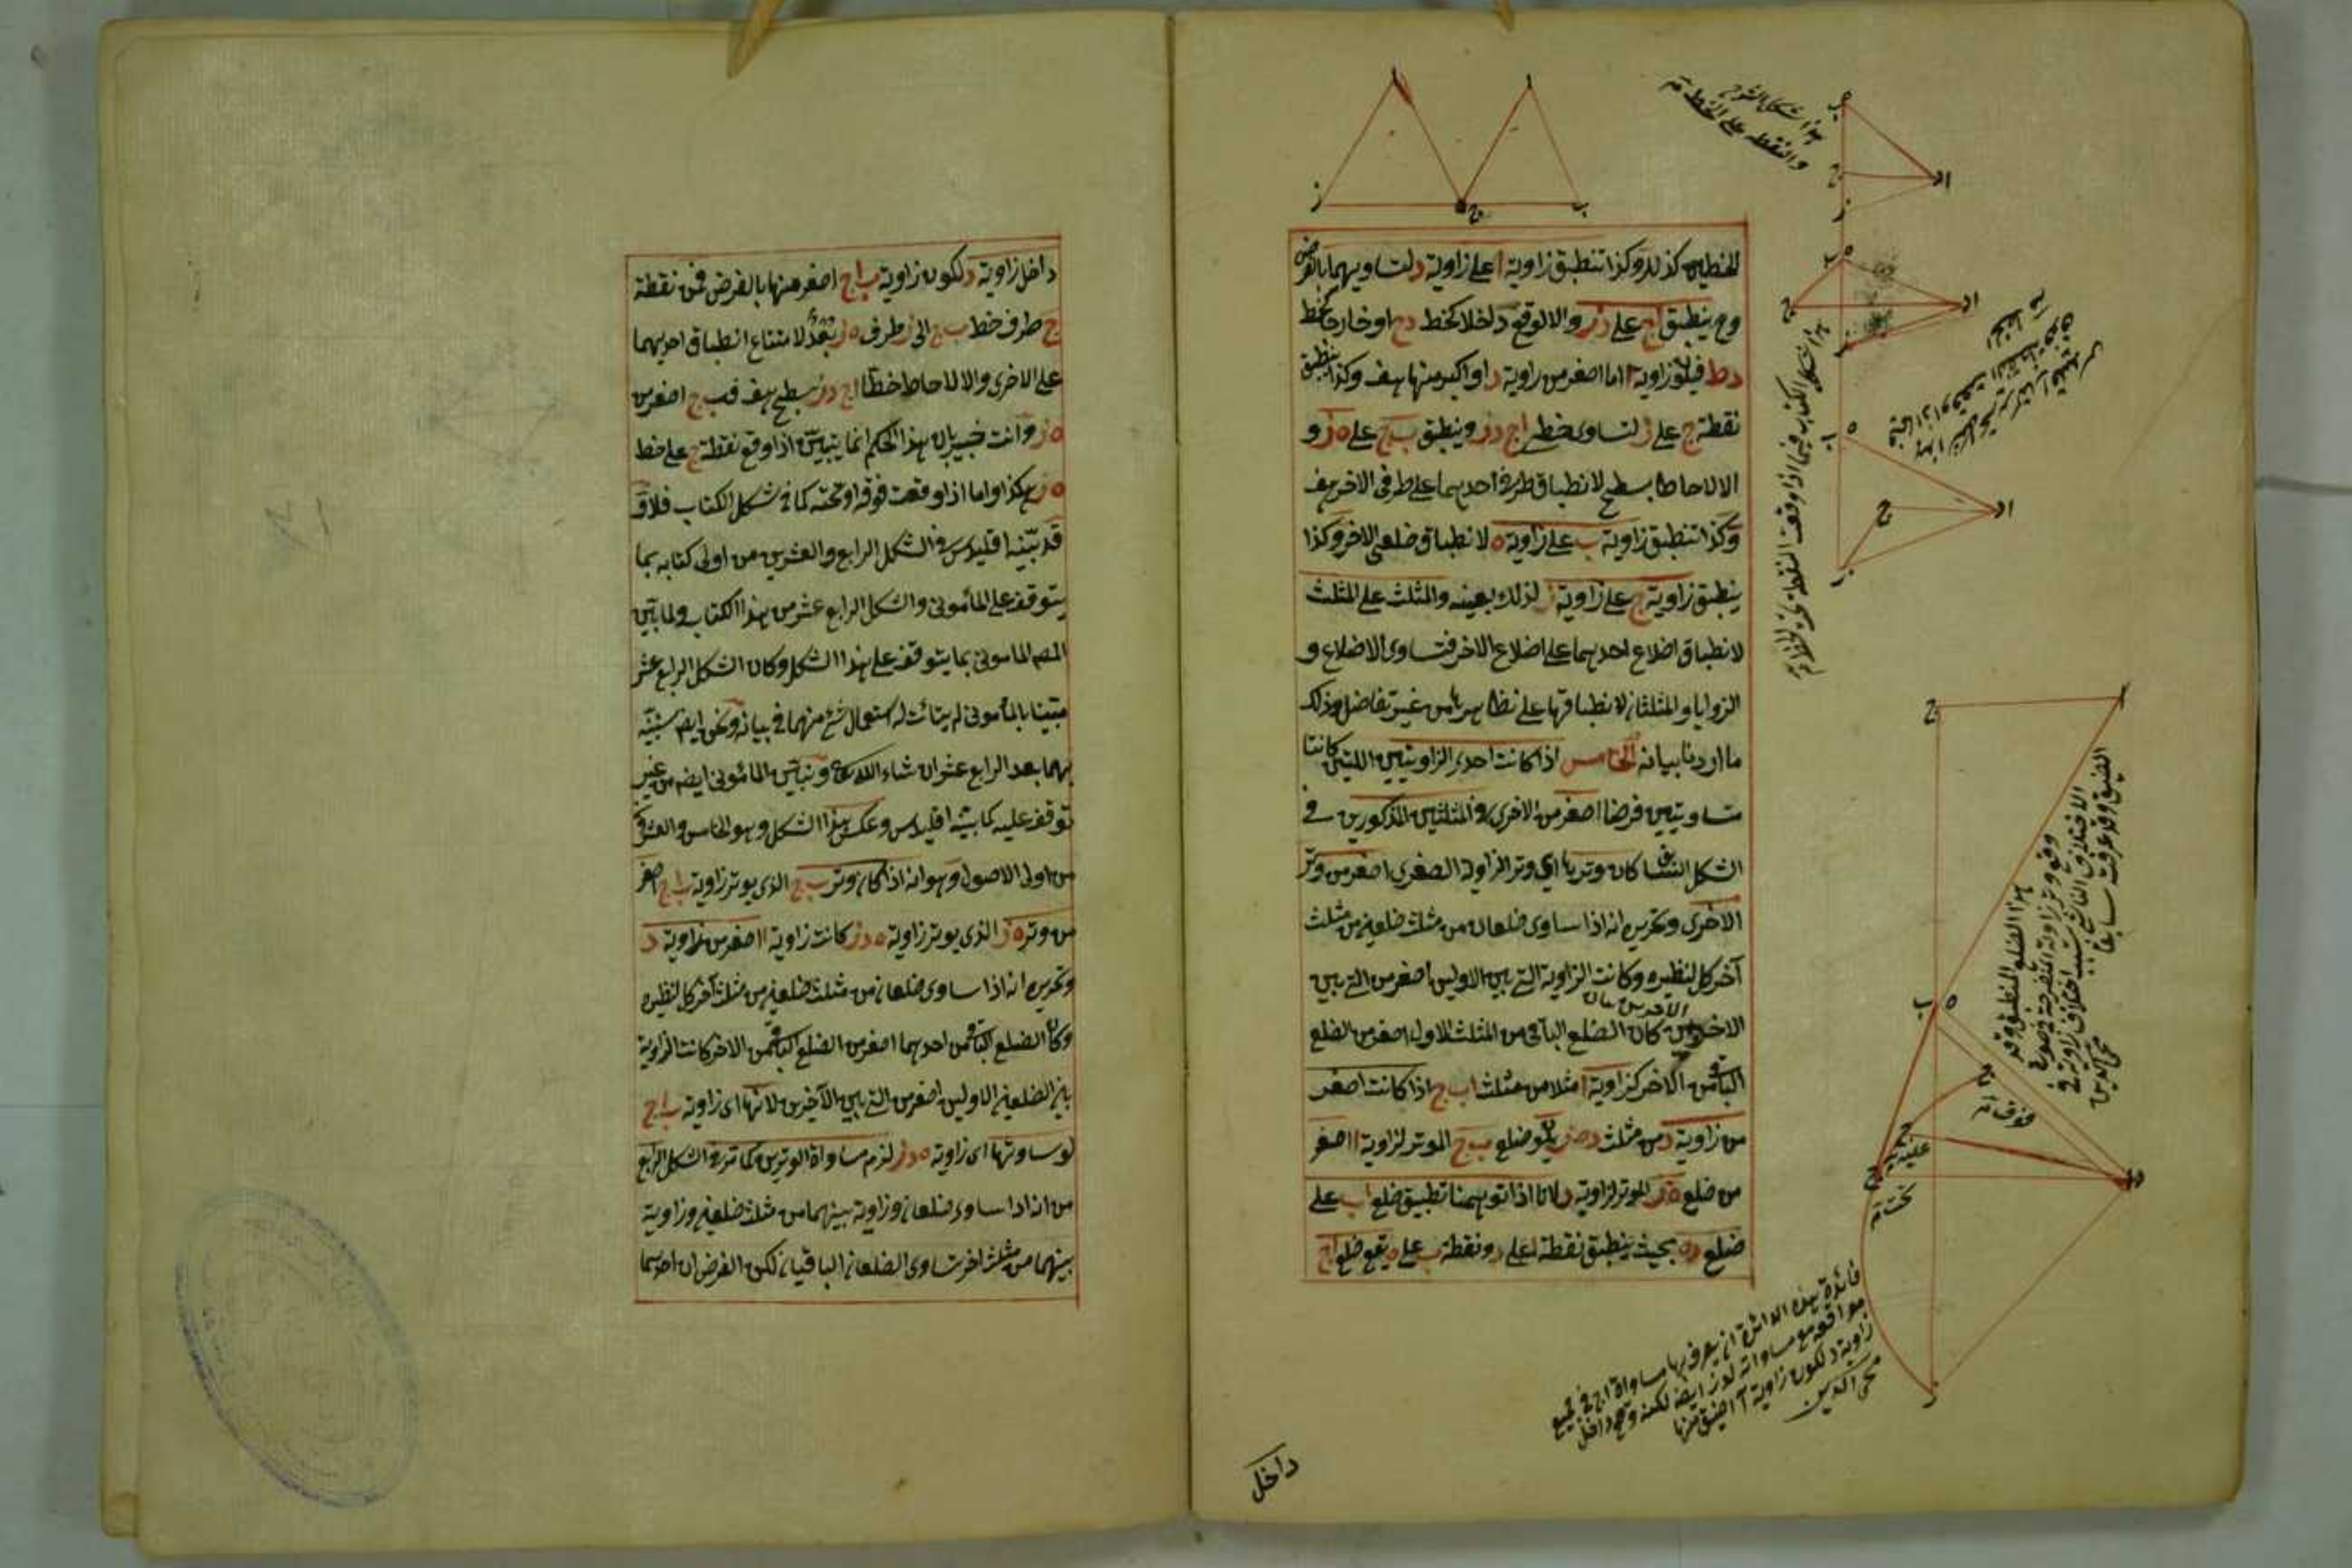 للخطين كذلك وكذا تنطبق زاوية ا على زاوية د لتساويهما بالفرض
وح ينطبق اج على دز والا لوقع داخلا كخط دح او خارجا كخط
دط فيكون زاوية ا اما اصغر من زاوية د او اكبر منها هف وكذا ينطبق
نقطة ج على ز لتساوى خطى اج دز وينطبق ب ج على ه ز و
الا لاحاطا بسطح لانطباق طرفى احدهما على طرفى الاخر هف
وكذا تنطبق زاوية ب على زاوية ه لانطباق ضلعى الاخر وكذا
ينطبق زاوية ج على زاوية ز لذلك بعينه والمثلث على المثلث
لانطباق اضلاع احدهما على اضلاع الاخر فتساوى الاضلاع و
الزوايا والمثلثان لانطباقها على نظايرها من غير تفاضل وذلك
ما اردنا بيانه الخامس اذا كانت احدى الزاويتين اللتين كانتا
متساويتين فرضا اصغر من الاخرى فى المثلثين المذكورين فى
الشكل السابق كان وترها اى وتر الزاوية الصغرى اصغر من وتر
الاخرى وتحريره انه اذا ساوى ضلعان من مثلث ضلعين من مثلث
آخر كل لنظيره وكانت الزاوية التى بين الاولين اصغر من التى بين
الاخرين كان الضلع الباقى من المثلث الاول اصغر من الضلع
الباقى من الاخر كزاوية ا مثلا من مثلث ا ب ج اذا كانت اصغر
من زاوية د من مثلث د ه ز يكون ضلع ب ج الموتر لزاوية ا اصغر
من ضلع ه ز الموتر لزاوية د لانا اذا توهمنا تطبيق ضلع ا ب على
ضلع د ه بحيث ينطبق نقطة ا على د ونقطة ب على ه يقع ضلع ا ج
داخل
هذا شكل الشرح
والنقطة على الخط
هذا شكل الكتاب فيما اذا وقعت النقطة
هذا الضلع المنطبق وقد
وقع وتر زاوية المنفرجة
فوق
عليه
تحت
فائدة هذه الدائرة ان يعرف بها مساواة اج فى جميع
مواقعه مع مساواته لدز ايضا لكنه وقع داخل
زاوية د لكون زاوية ا اضيق منها
محى الدين
داخل زاوية د لكون زاوية ب ا ج اصغر منها بالفرض فمن نقطة
ج طرف خط ب ج الى ز طرف ه ز بُعْدٌ لامتناع انطباق احديهما
على الاخرى والا لاحاط خطا اج دز بسطح هف فب ج اصغر من
ه ز وانت خبير بان هذا الحكم انما يتبين اذا وقع نقطة ج على خط
ه ز هكذا واما اذا وقعت فوقه او تحته كما فى شكل الكتاب فلا و
قد بيّنه اقليدس فى الشكل الرابع والعشرين من اولى كتابه بما
يتوقف على المأمونى والشكل الرابع عشر من هذا الكتاب ولما بيّن
المصه المامونى بما يتوقف على هذا الشكل وكان الشكل الرابع عشر
مبينا بالمأمونى لم يتأت له استعمال شئ منهما فى بيانه ونحن ايضا سنبيّنه
بهما بعد الرابع عشر ان شاء الله تع ونبيّن المأمونى ايضا من غير
توقف عليه كما بيّنه اقليدس وعكس هذا الشكل وهو الخامس والعشرون
من اولى الاصول وهو انه اذا كان وتر ب ج الذى يوتر زاوية ب ا ج اصغر
من وتر ه ز الذى يوتر زاوية ه د ز كانت زاوية ا اصغر من زاوية د
وتحريره انه اذا ساوى ضلعان من مثلث ضلعين من مثلث آخر كل لنظيره
وكان الضلع الباقى من احدهما اصغر من الضلع الباقى من الاخر كانت الزاوية
بين الضلعين الاولين اصغر من التى بين الآخرين لانها اى زاوية ب ا ج
لو ساوتها اى زاوية ه د ز لزم مساواة الوترين كما مر فى الشكل الرابع
من انه اذا ساوى ضلعان وزاوية بينهما من مثلث ضلعين وزاوية
بينهما من مثلث اخر تساوى الضلعان الباقيان لكن الفرض ان احدهما